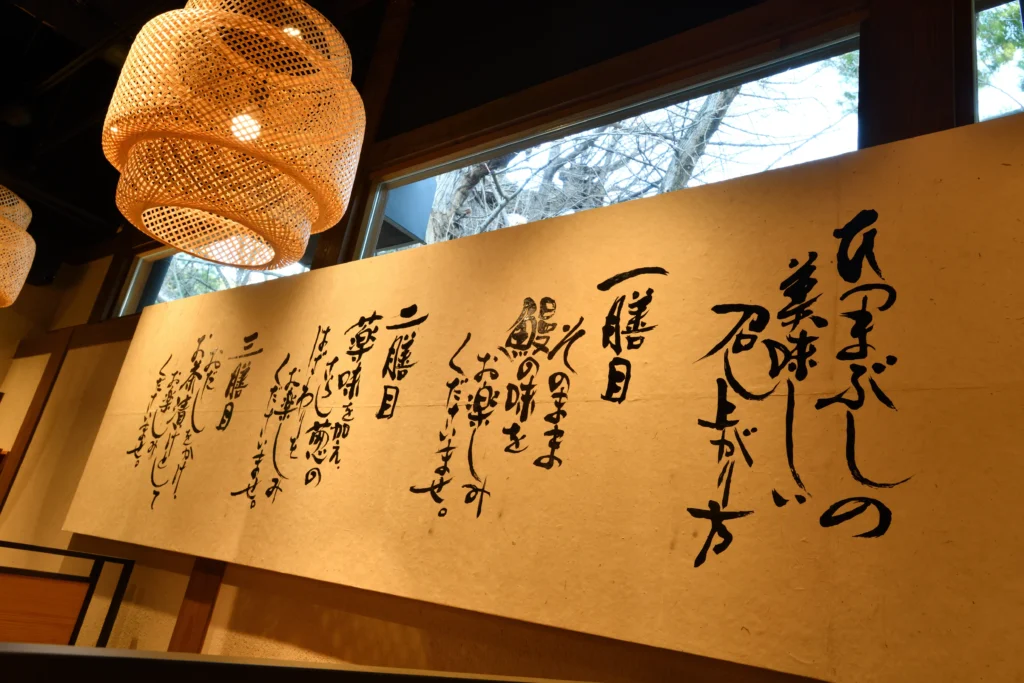 ひつまぶしの
美味しい
召し上がり方
一膳目
そのまま
鰻の味を
お楽しみ
くださいませ。
二膳目
薬味を加え、
葱の
お楽しみ
くださいませ。
三膳目
おだしをかけ、
お茶漬けとして
お楽しみ
くださいませ。